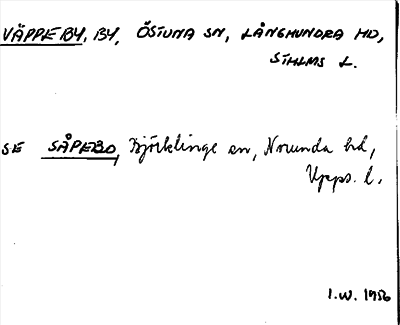 VÄPPEBY, BY, ÖSTUNA SN, LÅNGHUNDRA HD,
STHLMS L.
SE SÅPEBO, Björklinge sn, Norunda hd,
Upps. l.
I.W. 1956